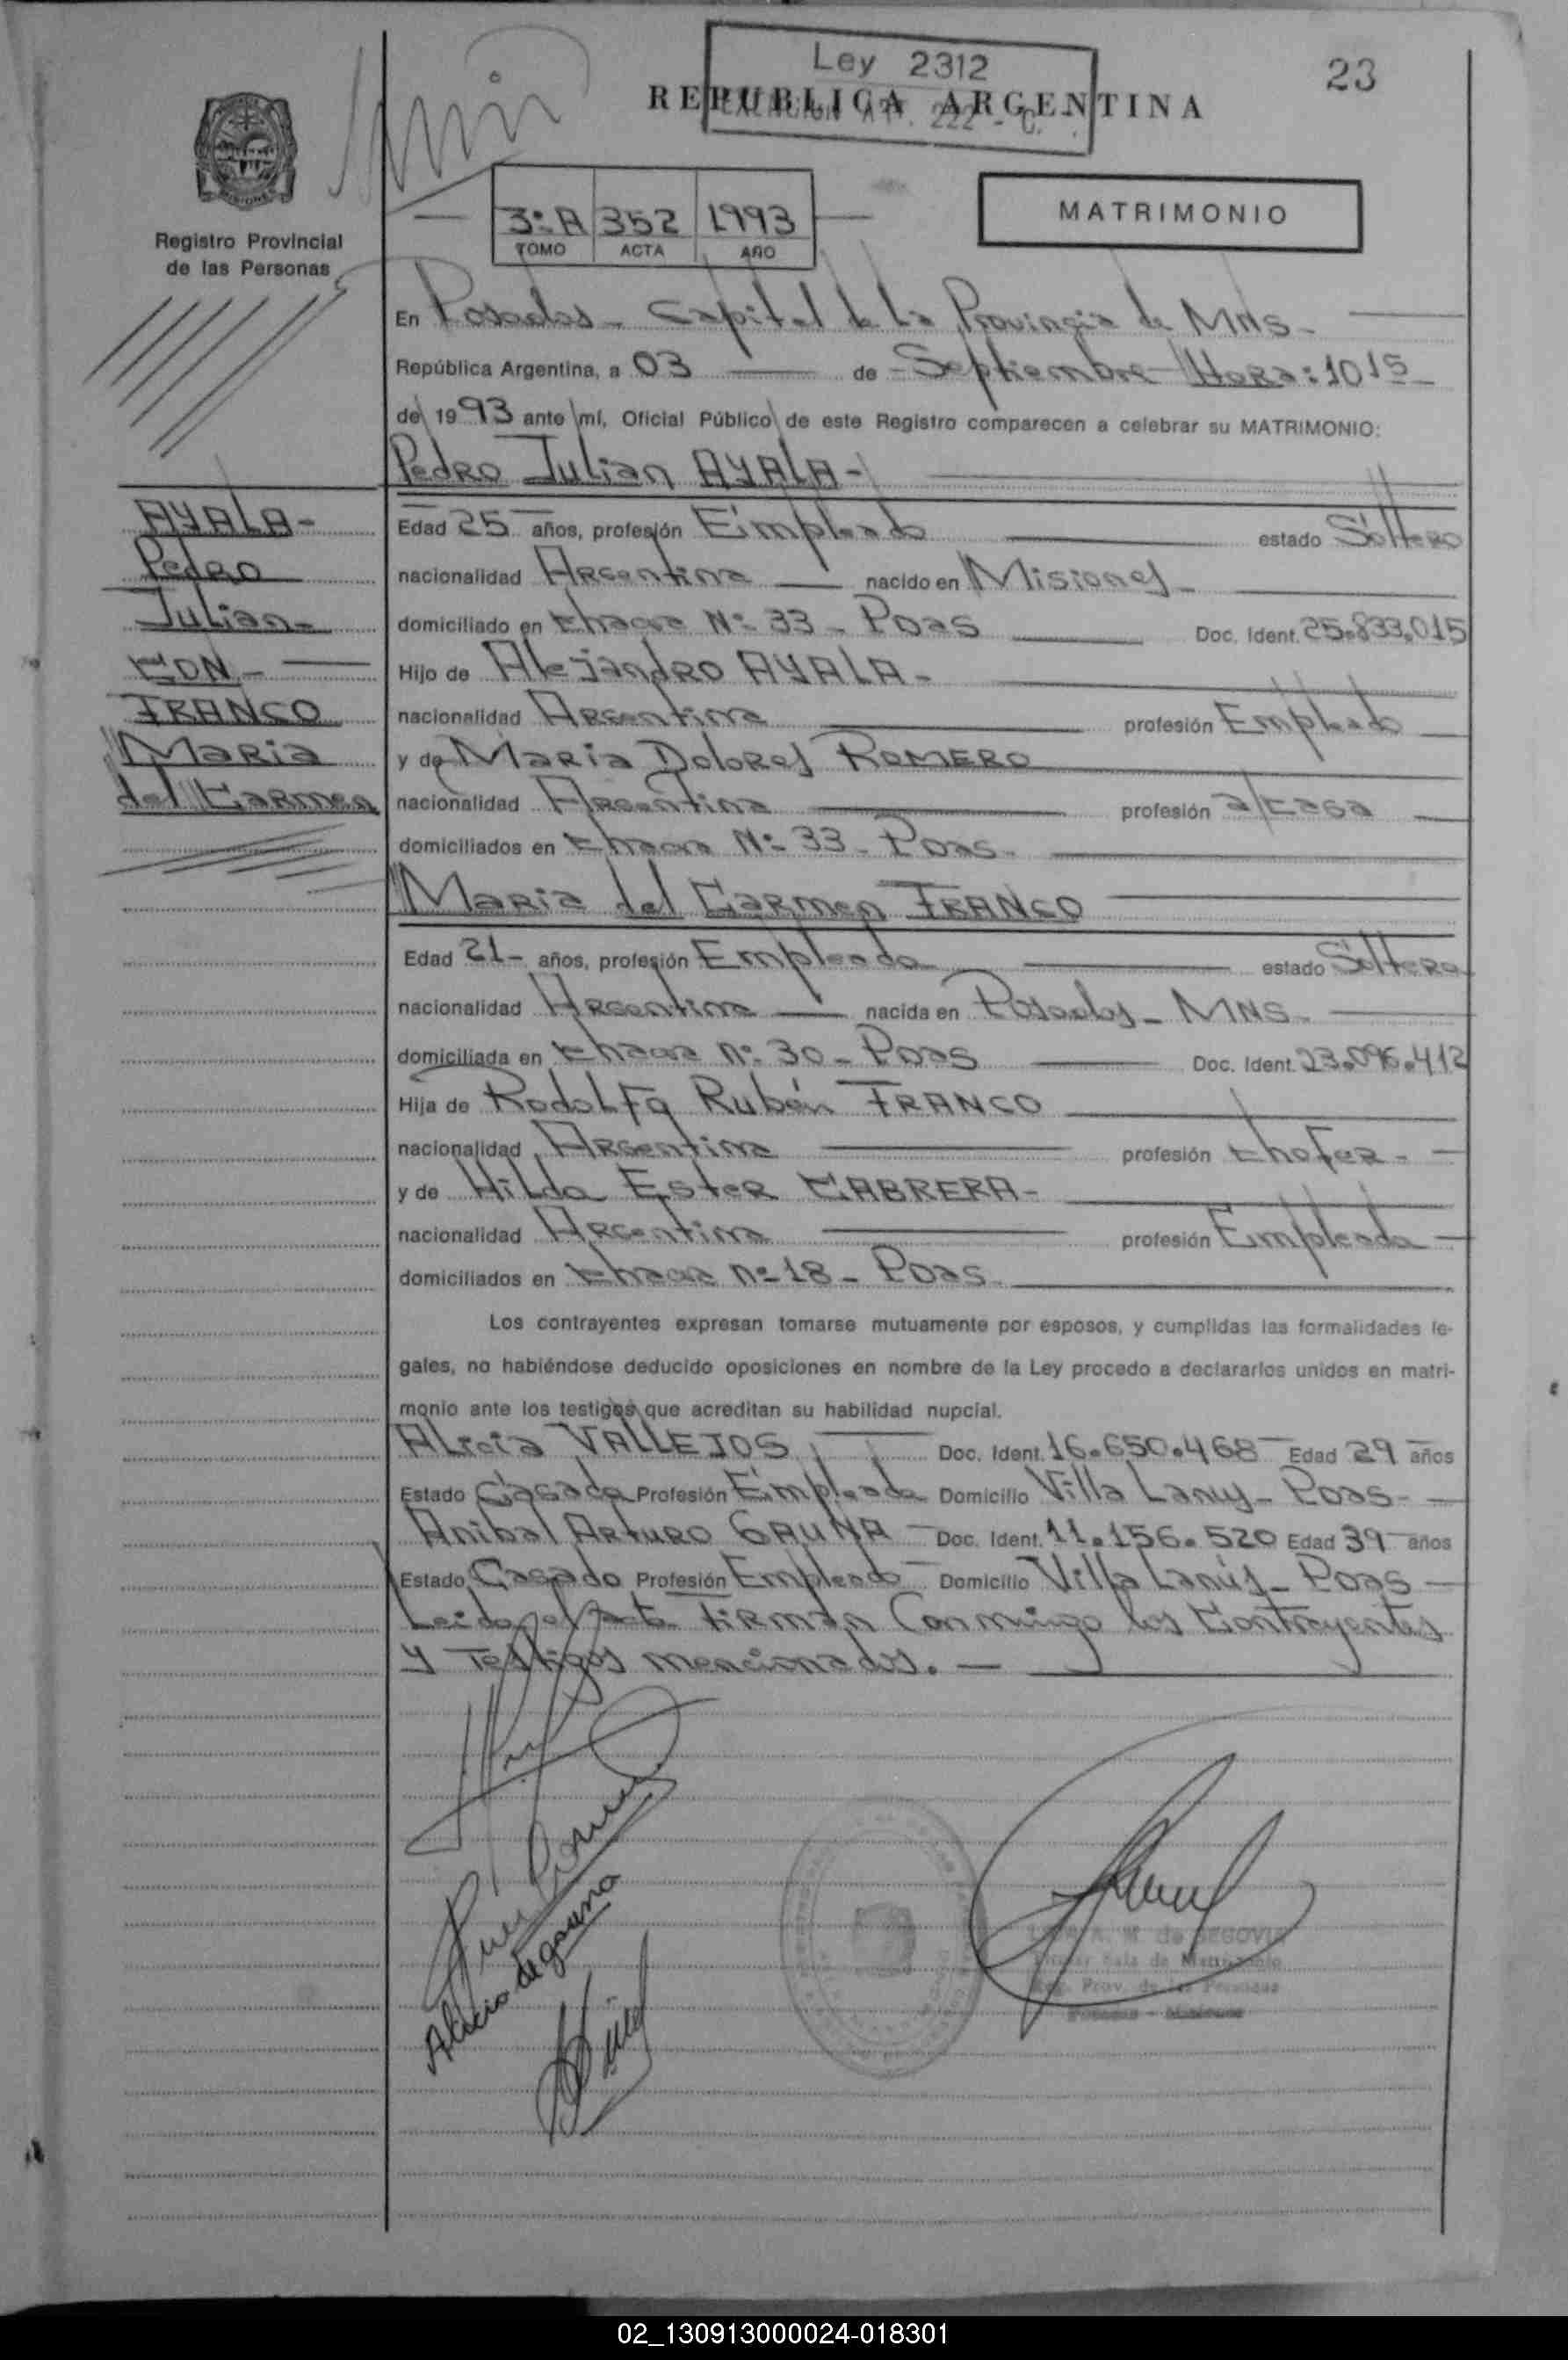 Ley 2312
23
REPUBLICA ARGENTINA
MISIONES
Registro Provincial
de las Personas
3:A 352 1993
TOMO ACTA AÑO
MATRIMONIO
En Posadas - Capital de la Provincia de MNS -
República Argentina, a 03 de Septiembre Hora: 10 15
de 1993 ante mí, Oficial Público de este Registro comparecen a celebrar su MATRIMONIO:
Pedro Julian AYALA -
AYALA -
Pedro
Julian -
CON -
FRANCO
Maria
del Carmen
Edad 25 años, profesión Empleado estado Soltero
nacionalidad Argentina nacido en Misiones -
domiciliado en Chacra Nº 33 - Pdas Doc. Ident. 25.833.015
Hijo de Alejandro AYALA -
nacionalidad Argentina profesión Empleado
y de Maria Dolores ROMERO
nacionalidad Argentina profesión a/casa
domiciliados en Chacra Nº 33 - Pdas -
Maria del Carmen FRANCO
Edad 21 - años, profesión Empleada estado Soltera
nacionalidad Argentina nacida en Posadas - MNS -
domiciliada en Chacra nº 30 - Pdas Doc. Ident. 23.096.412
Hija de Rodolfo Rubén FRANCO
nacionalidad Argentina profesión Chofer -
y de Hilda Ester CABRERA -
nacionalidad Argentina profesión Empleada
domiciliados en Chacra nº 18 - Pdas
Los contrayentes expresan tomarse mutuamente por esposos, y cumplidas las formalidades le-
gales, no habiéndose deducido oposiciones en nombre de la Ley procedo a declararlos unidos en matri-
monio ante los testigos que acreditan su habilidad nupcial.
Alicia VALLEJOS Doc. Ident. 16.650.468 Edad 29 años
Estado Casada Profesión Empleada Domicilio Villa Lanus - Pdas -
Anibal Arturo GAUNA Doc. Ident. 11.156.520 Edad 39 años
Estado Casado Profesión Empleado Domicilio Villa Lanús - Pdas
Leida el acta firman Conmigo los Contrayentes
y Testigos mencionados. -
Alicia de gauna
de SEGOVIA
Sala de Matrimonio
Reg. Prov. de las Personas
Posadas - Misiones
02_130913000024-018301